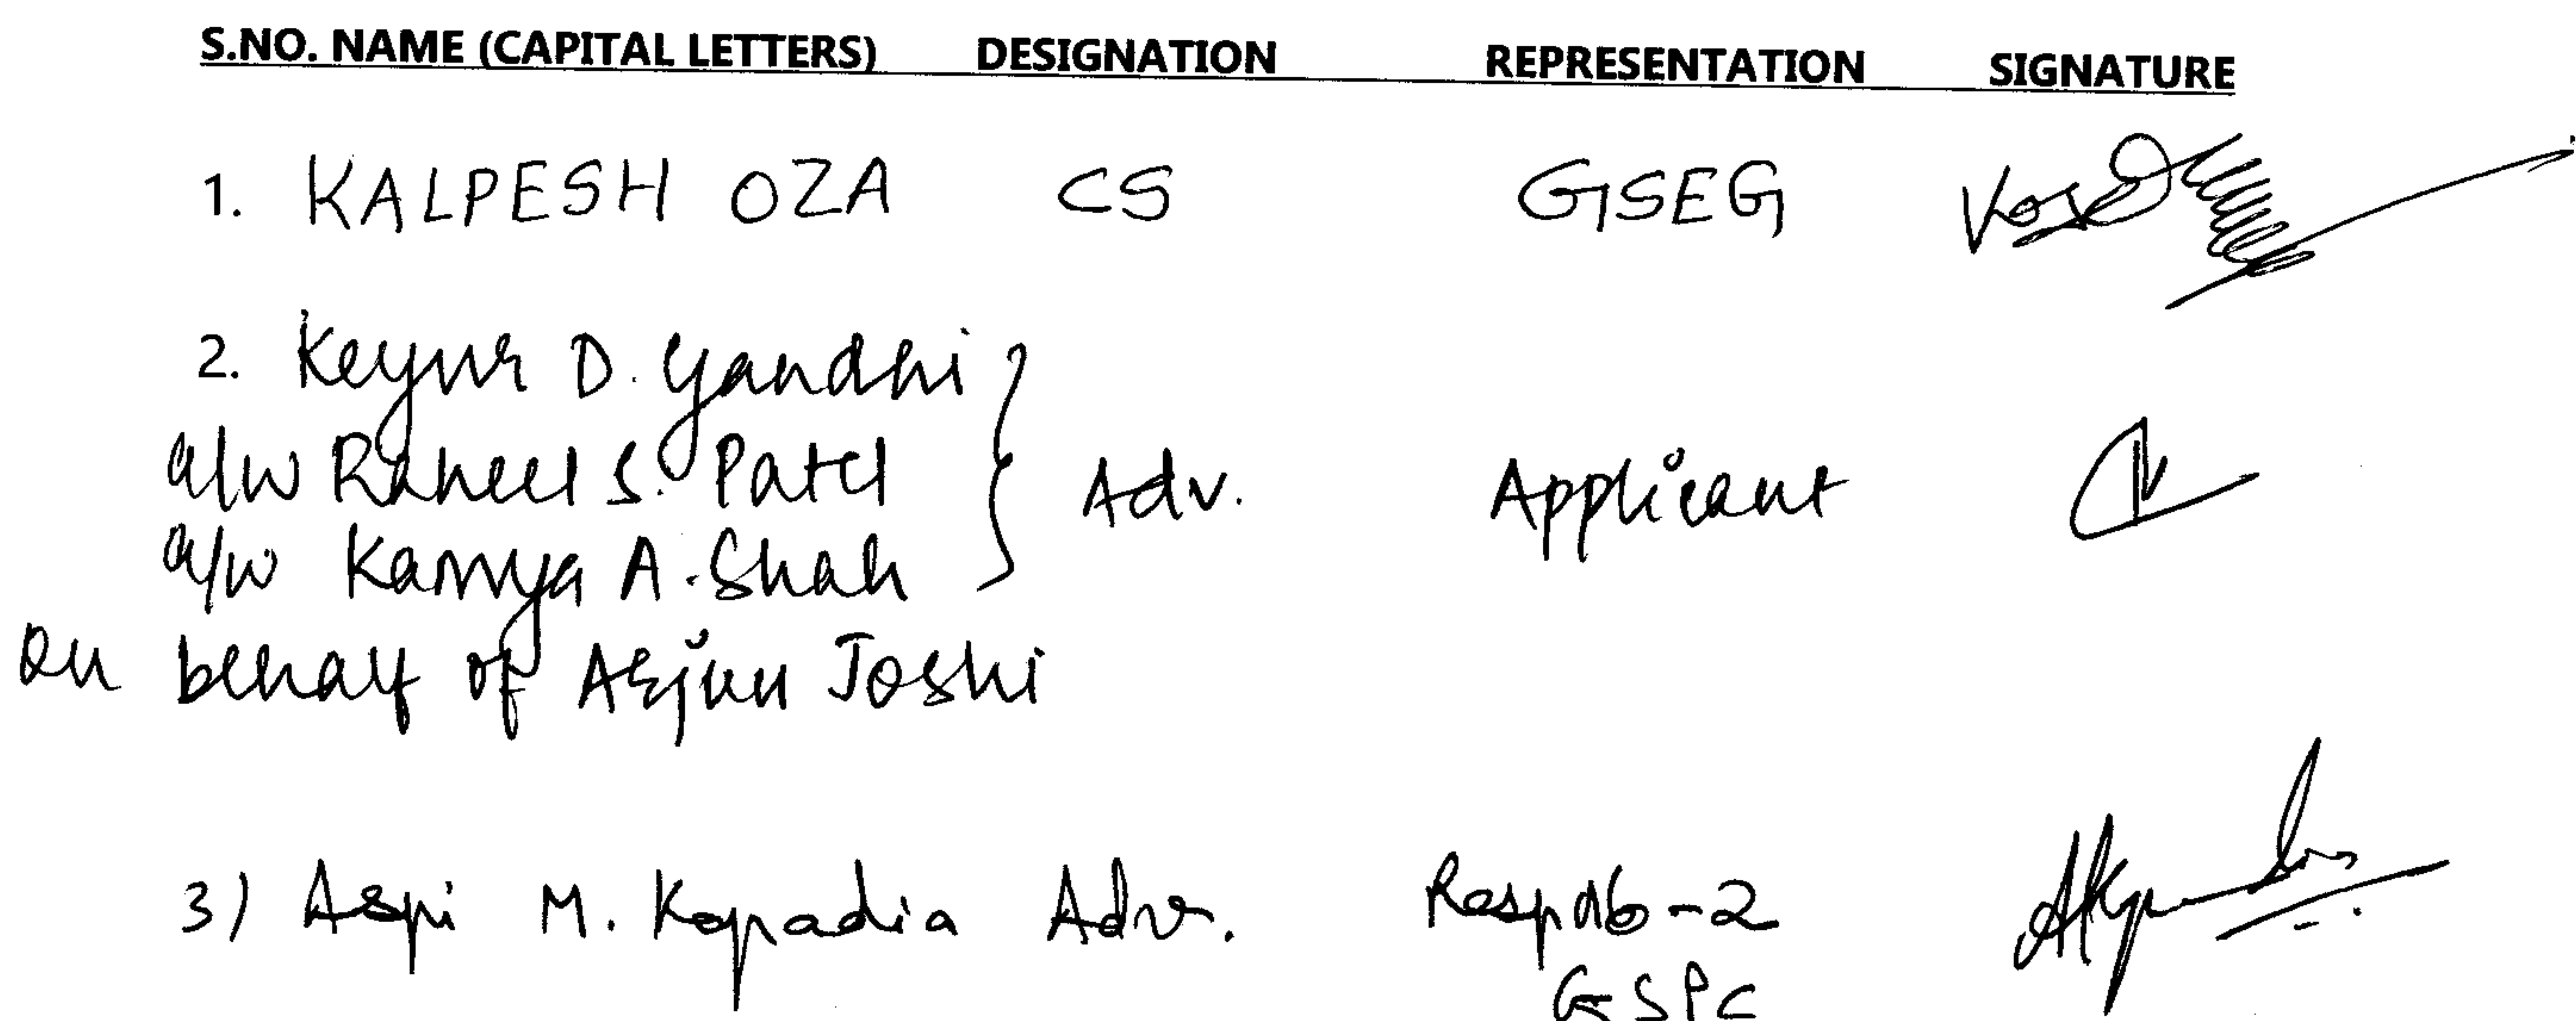 S.NO. NAME (CAPITAL LETTERS) DESIGNATION REPRESENTATION SIGNATURE
1. KALPESH OZA CS GSEG
2. Keyur D. Gandhi
a/w Raheel S. Patel Adv. Applicant
a/w Kamya A. Shah
on behalf of Arjun Joshi
3) Aspi M. Kapadia Adv. Resp No-2
GSPC